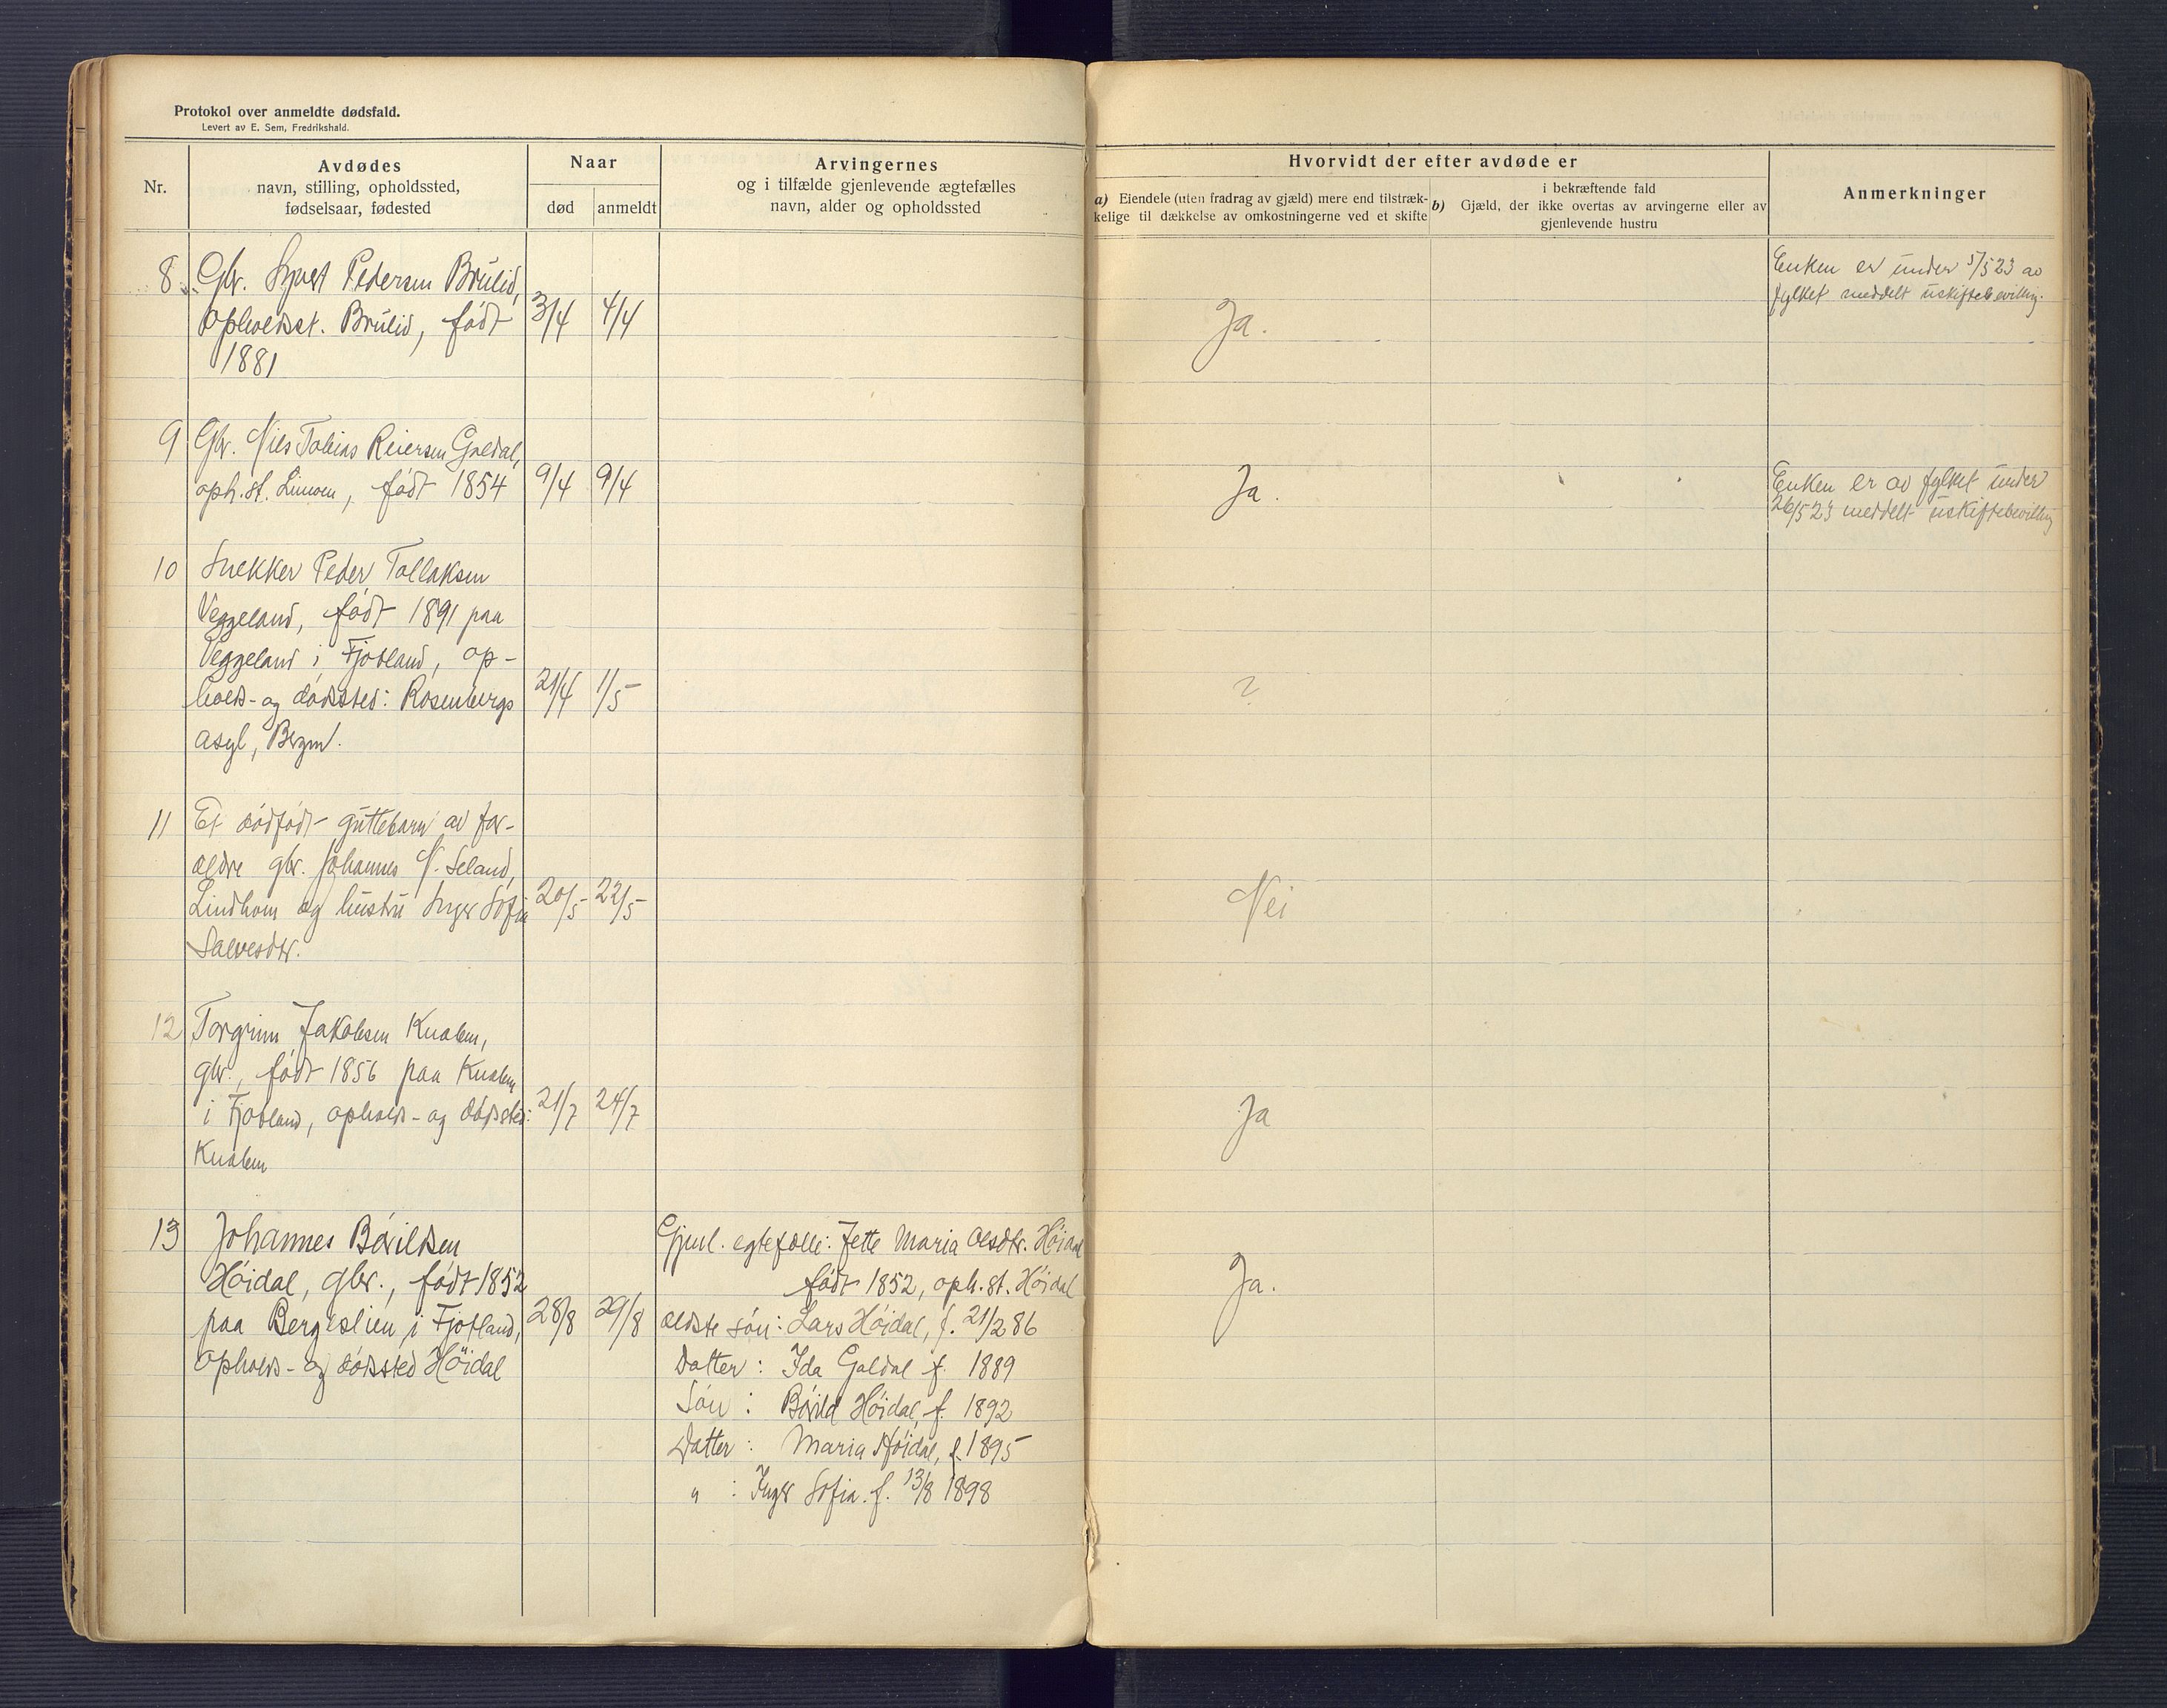 Protokol over anmeldte dødsfald.
Levert av E. Sem, Fredrikshald.
Nr.
Avdødes
navn, stilling, opholdssted,
fødselsaar, fødested
Naar
død
anmeldt
Arvingernes
og i tilfælde gjenlevende ægtefælles
navn, alder og opholdssted
Hvorvidt der efter avdøde er
a) Eiendele (uten fradrag av gjæld) mere end tilstræk-
kelige til dækkelse av omkostningerne ved et skifte
b) i bekræftende fald
Gjæld, der ikke overtas av arvingerne eller av
gjenlevende hustru
Anmerkninger
8. Gbr. Pedersen Brulid,
opholdsst. Brulid, født
1881
3/4
4/4
Ja.
Enken er under 5/5 23 av
fylket meddelt uskiftebevillig.
9 Gbr. Nils Tobias Reiersen Galdal,
oph.st. født 1854
9/4
9/4
Ja.
Enken er av fylket under
26/5 23 meddelt uskiftebevillig
10 Snekker Peder Tollaksen
Veggeland, født 1891 paa
Veggeland i Fjotland, op-
holds- og dødssted: Rosenbergs
asyl, Bergen.
21/4
1/5
?
11 Et dødfødt guttebarn av for-
ældre gbr. Johannes N. Seland,
Lindhom og hustru Inger Sofia
Salvesdtr.
20/5
22/5
Nei
12 Torgrim Jakobsen Knaben,
gbr., født 1856 paa Knaben
i Fjotland, opholds- og dødssted:
Knaben
21/7
24/7
Ja
13 Johannes Bøvildsen
Høidal, gbr., født 1852
paa Bergeslien i Fjotland,
opholds- og dødssted Høidal
28/8
29/8
Gjenl. egtefælle: Jette Maria Olsdtr. Høidal
født 1852, oph.st. Høidal
ældste søn: Lars Høidal, f. 21/2 86
Datter: Ida Galdal f. 1889
Søn: Bøvild Høidal, f. 1892
Datter: Maria Høidal, f. 1895
" : Inger Sofia. f. 13/8 1898
Ja.